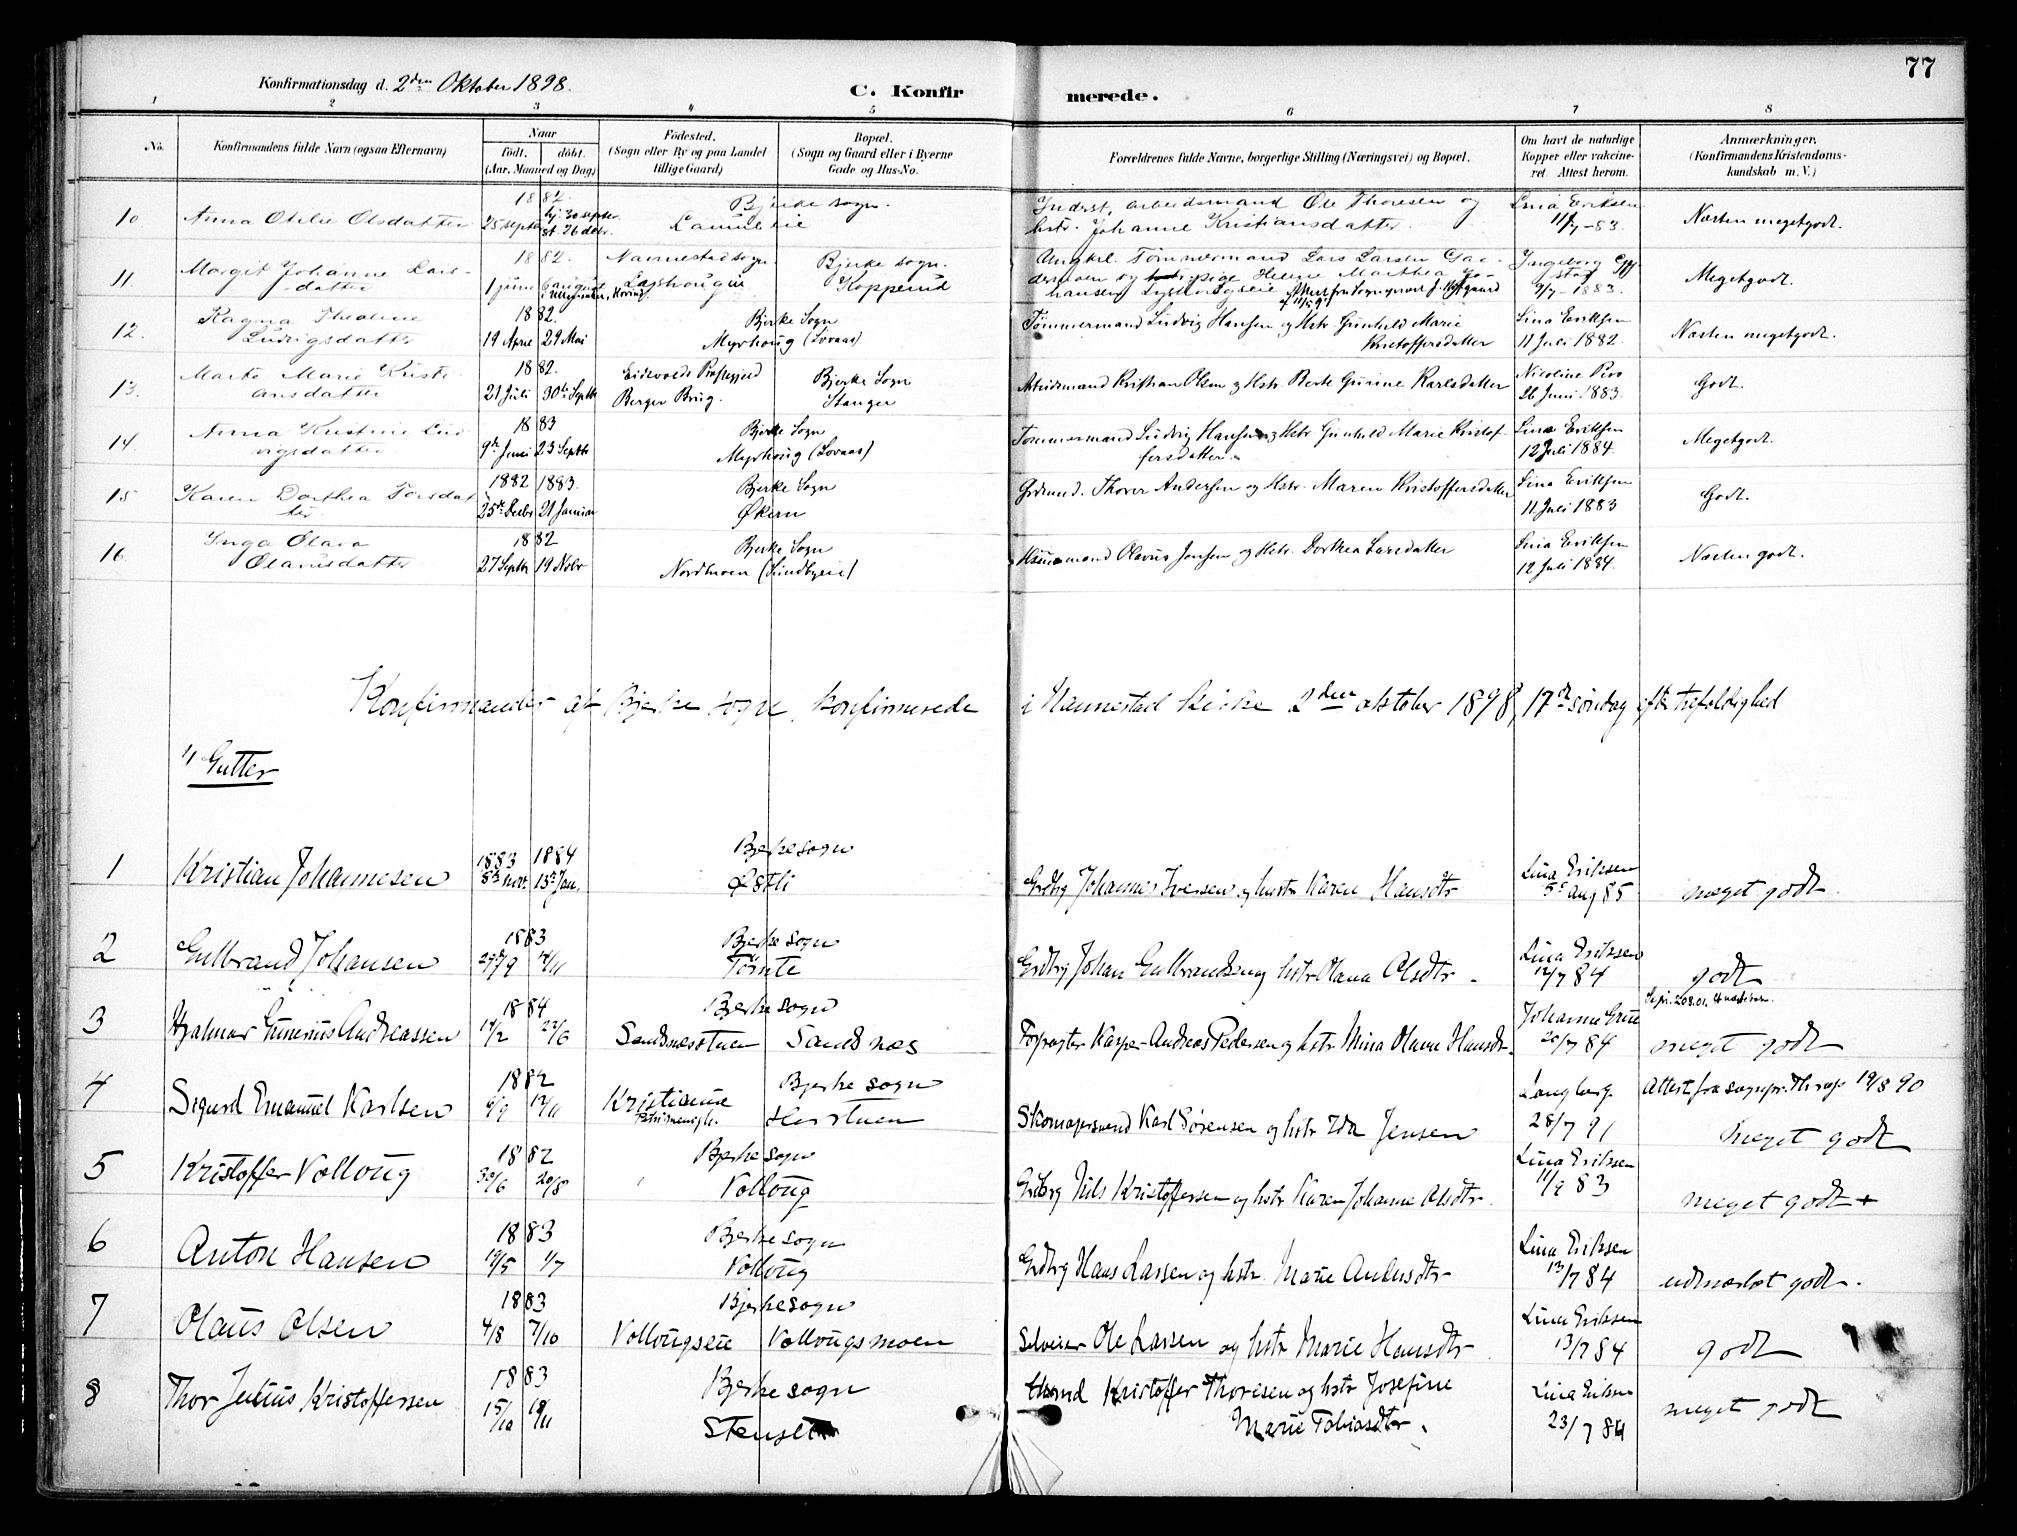 77
Konfirmationsdag d. 2den Oktober 1898.
C. Konfir merede.
1 2 3 4 5 6 7 8
No.
Konfirmandens fulde Navn (ogsaa Efternavn)
Naar
født. døbt.
(Aar, Maaned og Dag)
Fødested.
(Sogn eller By og paa Landet
tillige Gaard)
Bopæl.
(Sogn og Gaard eller i Byerne
Gade og Hus-No.
Forældrenes fulde Navne, borgerlige Stilling (Næringsvei) og Bopæl.
Om havt de naturlige
Kopper eller vakcine-
ret. Attest herom.
Anmærkninger.
(Konfirmandens Kristendoms-
kundskab m. V.)
1882. Bjerke sogn.
10 Anna Othilie Olsdatter 25 septbr hj. 30 septbr. st. 26 debr.
Inderst, arbeidsmand Ole Thoresen og
hstr. Johanne Kristiansdatter
Lina Eriksen
11/7-83.
Næsten megetgodt.
11 Margit Johanne Lars-
datter
1882.
1 juni 6 august
Nannestad sogn.
Bjerke sogn.
Kopperud
Ungkl. Tømmermand Lars Larsen
og pige Helene Marthea Jo-
hansen
Ingeborg
9/7-1883.
Megetgodt.
12. Ragna Theoline
Ludvigsdatter
1882.
19 April 29 Mai
Bjerke Sogn
Myrhoug (Lovaas)
Tømmermand Ludvig Hansen og Hstr. Gunhild Marie
Kristoffersdatter
Lina Eriksen
11 Juli 1882.
Næsten megetgodt.
13. Marte Marie Kristi-
ansdatter
1882.
21 Juli 30te Septbr
Eidsvolds Præstegjeld
Berger Brug.
Bjerke Sogn
Stanger
Arbeidsmand Kristian Olsen og Hstr. Berte Gurine Karlsdatter
Nicoline Piro
26 Juni 1883.
Godt.
14 Anna Kristine Lud-
vigsdatter
1883
9de Juni 23 Septbr
Bjerke Sogn
Myrhoug (Lovaas)
Tømmermand Ludvig Hansen og Hstr Gunhild Marie Kristof-
fersdatter.
Lina Eriksen
12 Juli 1884.
Megetgodt.
15 Karen Dorthea Torsdat
ter
1882 1883.
25de Decbr 21 Januar
Bjerke Sogn
Økern
Grdmnd. Thorer Andersen og Hstr. Maren Kristoffersdatter
Lina Eriksen
11 Juli 1883
Godt.
16 Inga Olava
Olavusdatter
1882
27 Septbr 19 Nobr
Bjerke Sogn
Nordmoen (Lundbyeie)
Husmand Olavus Jensen og Hstr. Dorthea Larsdatter
Lina Eriksen
12 Juli 1884.
Næsten godt.
Konfirmander af Bjerke sogn, konfirmerede i Nannestad kirke 2den oktober 1898, 17de søndag efter trefoldighed
1) Gutter
1 Kristian Johannesen
1883 1884
8de novr. 13de Jan.
Bjerke sogn
Østli
Grdbrg Johannes Iversen og hustr Karen Hansdtr
Lina Eriksen
5te aug 85
meget godt.
2 Gulbrand Johansen
1883
Bjerke sogn
Tømte
Grdbrg Johan Gulbrandsen og hstr Olava Olsdtr.
Lina Eriksen
12/7 84
godt
3 Hjalmar Gunerius Andreassen
1884
14/2 22/6
Bjerke sogn
Sandsnesstuen Sandsnes
Kasper Andreas Pedersen og hstr Mina Olava Hansdtr.
Johanne
20/7 84
meget godt
4 Sigurd Emanuel Karlsen
1882
6/9 12/11
Kristiania
Bjerke sogn
Skomagersvend Karl Sørensen og hstr Ida Jensen
Langberg
28/7 91
Attest fra sognepr. 19/8 90
meget godt
5 Kristoffer Volloug
1882
30/6 20/8
Bjerke sogn
Volloug
Grdbrg Nils Kristoffersen og hstr Karen Johanne Olsdtr.
Lina Eriksen
11/9 83
meget godt +
6 Anton Hansen
1883
19/5 1/7
Bjerke sogn
Volloug
Grdbrg Hans Larsen og hstr. Marie Andersdtr
Lina Eriksen
13/7 84
udmærket godt.
7 Olaus Olsen
1883
4/8 7/10
Bjerke sogn
Vollougseie Vollougsmoen
Selveier Ole Larsen og hstr Marie Hansdtr
Lina Eriksen
13/7 84
godt
8 Thor Julius Kristoffersen
1883
15/10 18/11
Bjerke sogn
Kristoffer Thoresen og hstr Josefine
Marie Tobiasdtr.
Lina Eriksen
23/7 84
meget godt